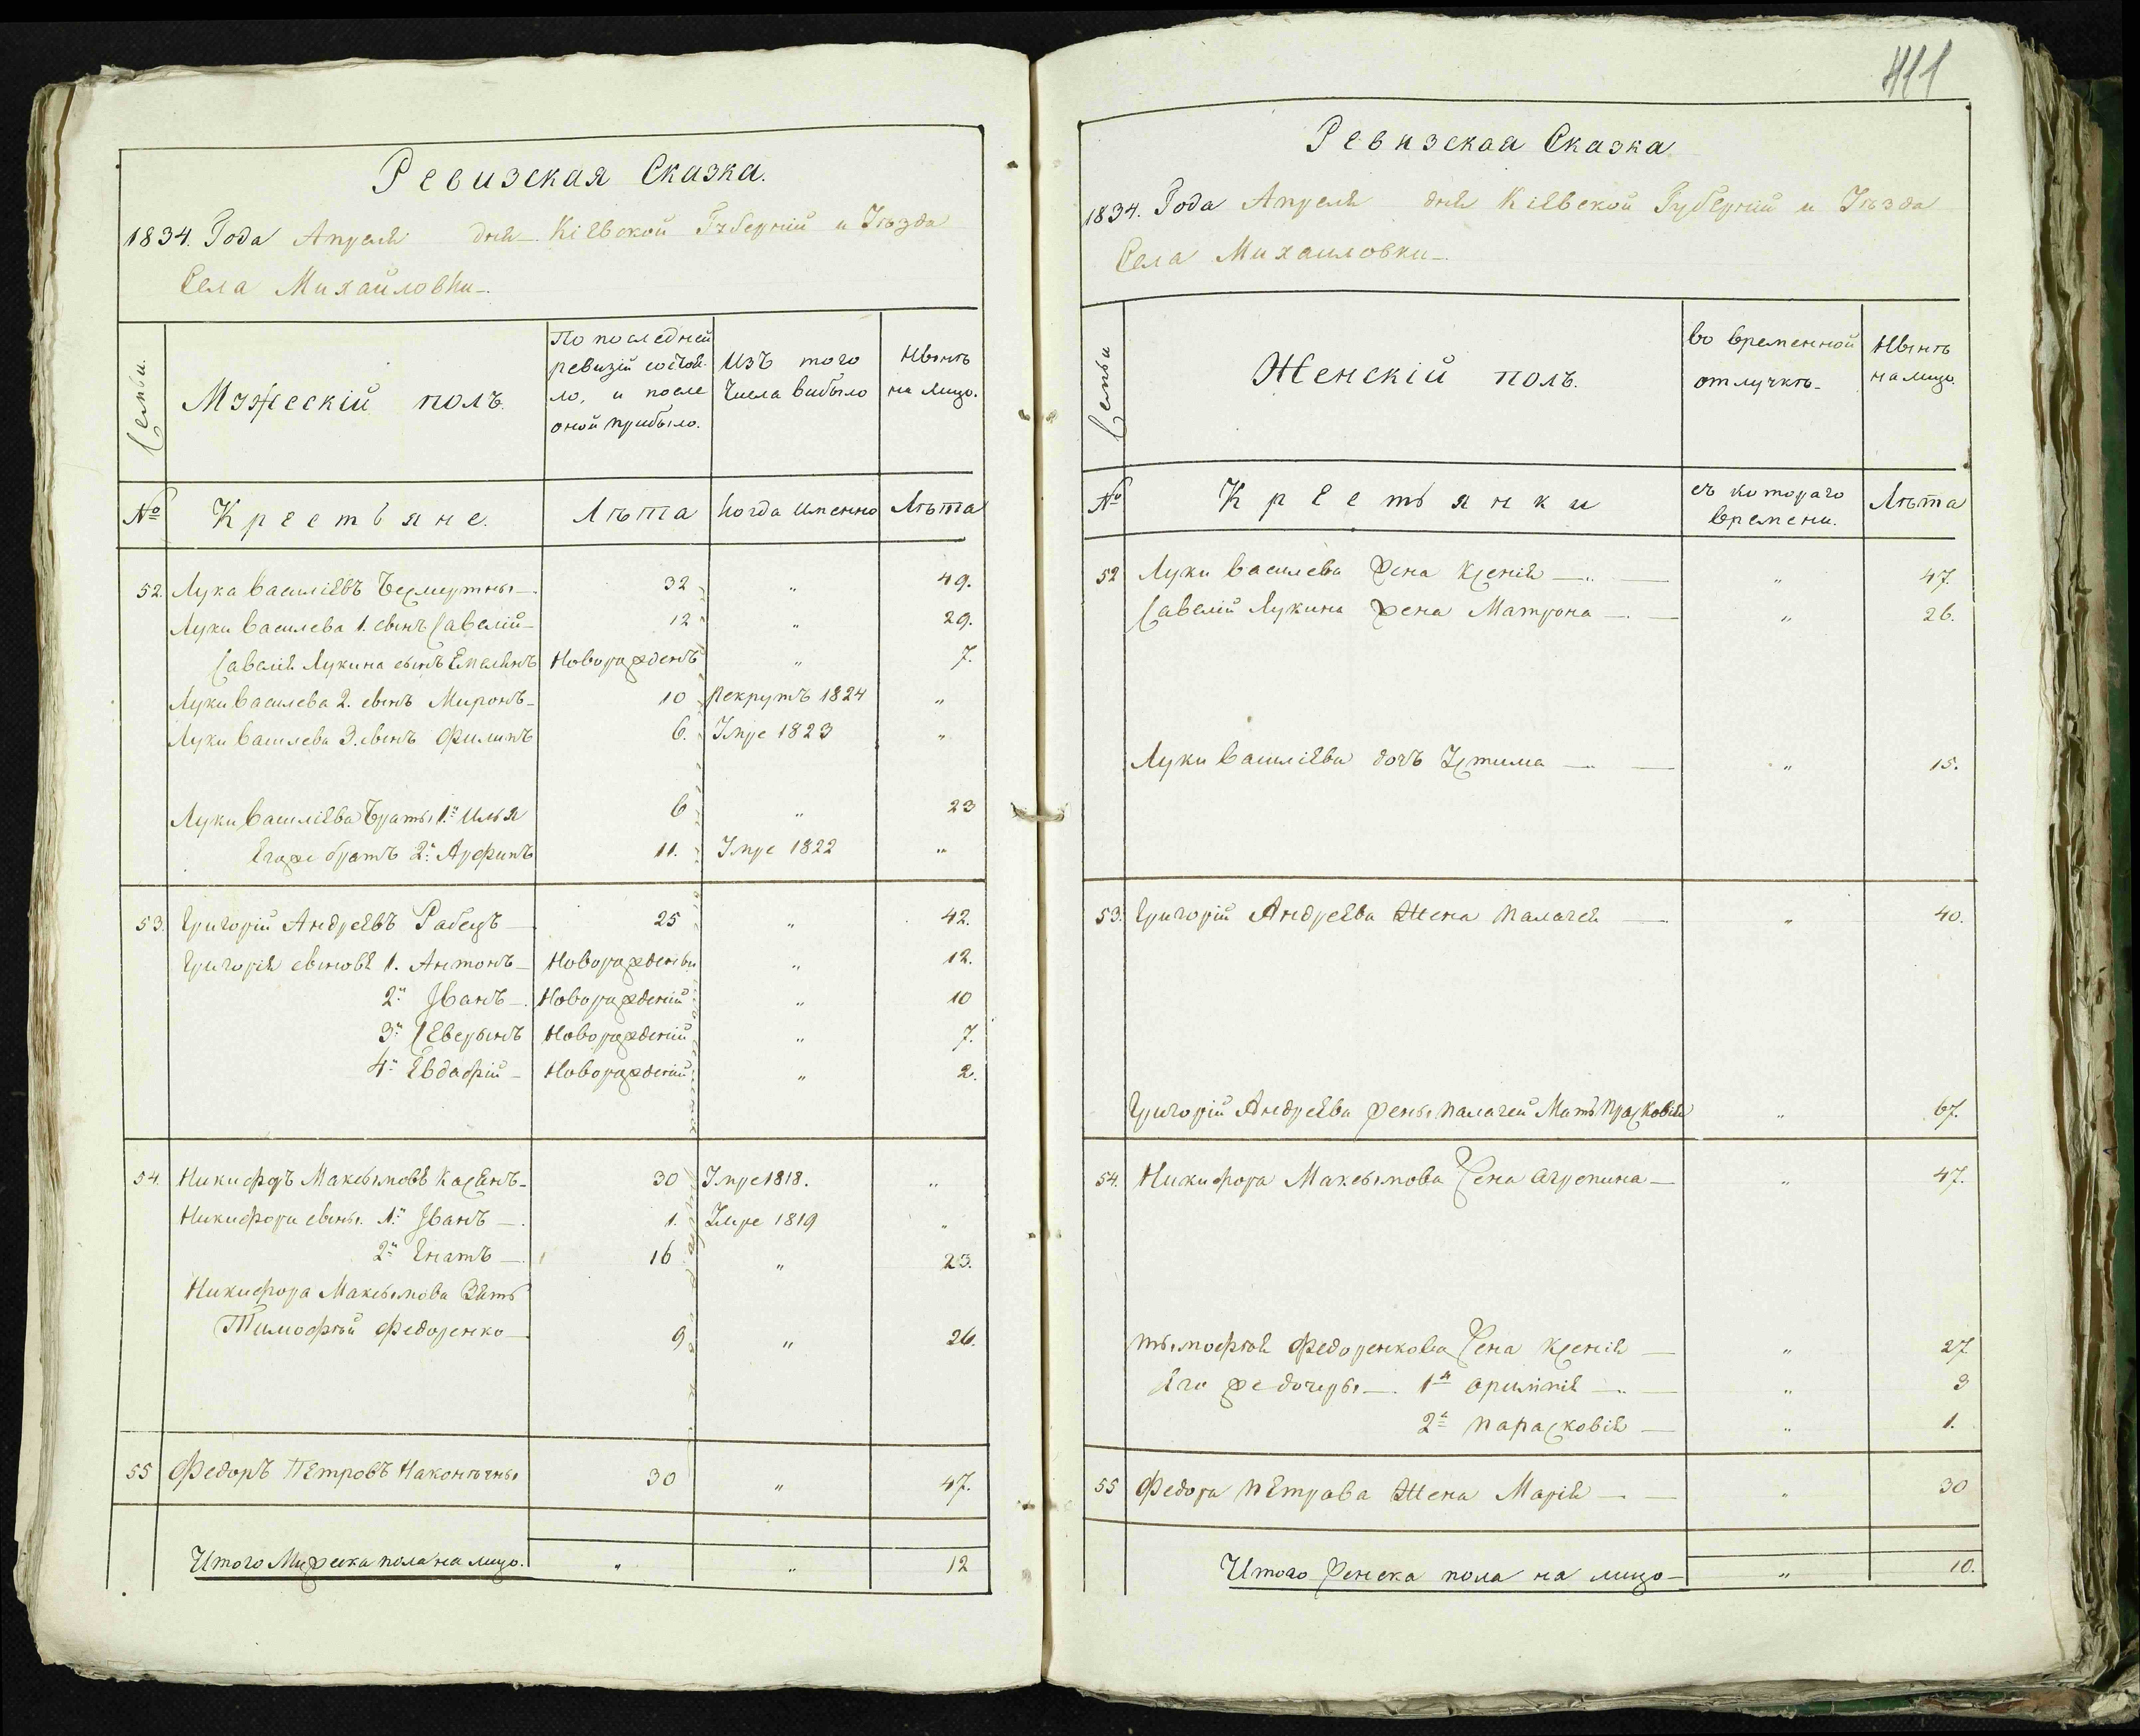 Ревизская Сказка.
1834. Года Апреля дня Кіевской Губерній и Уѣзда
Села Михайловки
Семьи.
Мужескій полъ.
По последней
ревизій состоя-
ло, и после
оной прибыло.
Изъ того
числа выбыло
Нынѣ
на лицо.
№
Крестьяне.
Лѣта
Когда именно
Лѣта
52. Лука Василіевъ 32 " 49.
Луки Василева 1. сынъ Савелій 12 " 29.
Савелія Лукина сынъ Емельянъ Новорожденъ " 7.
Луки Василева 2. сынъ Миронъ 10 рекрутъ 1824 "
Луки Василева 3. сынъ Филипъ 6. Умре 1823 "
Луки Василіева Братьи 1й Илья 6 " 23
Егоже братъ 2й 11. Умре 1822 "
53. Григорій Андреевъ Рабецъ 25 " 42.
Григорія сыновя 1. Антонъ Новорожденый " 12.
2й Иванъ Новорожденій " 10
3й Северынъ Новорожденій " 7.
4й Евдафій Новорожденій " 2.
54. Никифоръ Максымовъ 30 Умре 1818. "
Никифора сыны 1й Иванъ 1. Умре 1819 "
2й Енатъ 16 " 23.
Никифора Максымова Зять
Тимофѣй Федоренко 9 " 26.
55 Федоръ Петровъ Наконѣчны 30 " 47.
Итого Мужеска пола на лицо. " " 12
411
Ревизская Сказка
1834. Года Апреля дня Кіевской Губерній и Уѣзда
Села Михаиловки
Семьи
Женскій полъ.
во временной
отлучкѣ
Нынѣ
на лицо.
№
Крестьянки
съ котораго
времени.
Лѣта
52 Луки Василева жена Ксенія " 47.
Савелій Лукина жена Матрона " 26.
Луки Василіева дочь Устима " 15.
53. Григорій Андреева Жена Палагея " 40.
Григорій Андреева жены Палагей Мать Прасковія " 67.
54. Никифора Максымова Жена Агрепина " 47.
Тымофѣя Федоренкова Жена Ксенія " 27
Его же дочеры 1я " 3
2я Парасковія " 1.
55 Федора Петрова Жена Марія " 30
Итого Женска пола на лицо " 10.